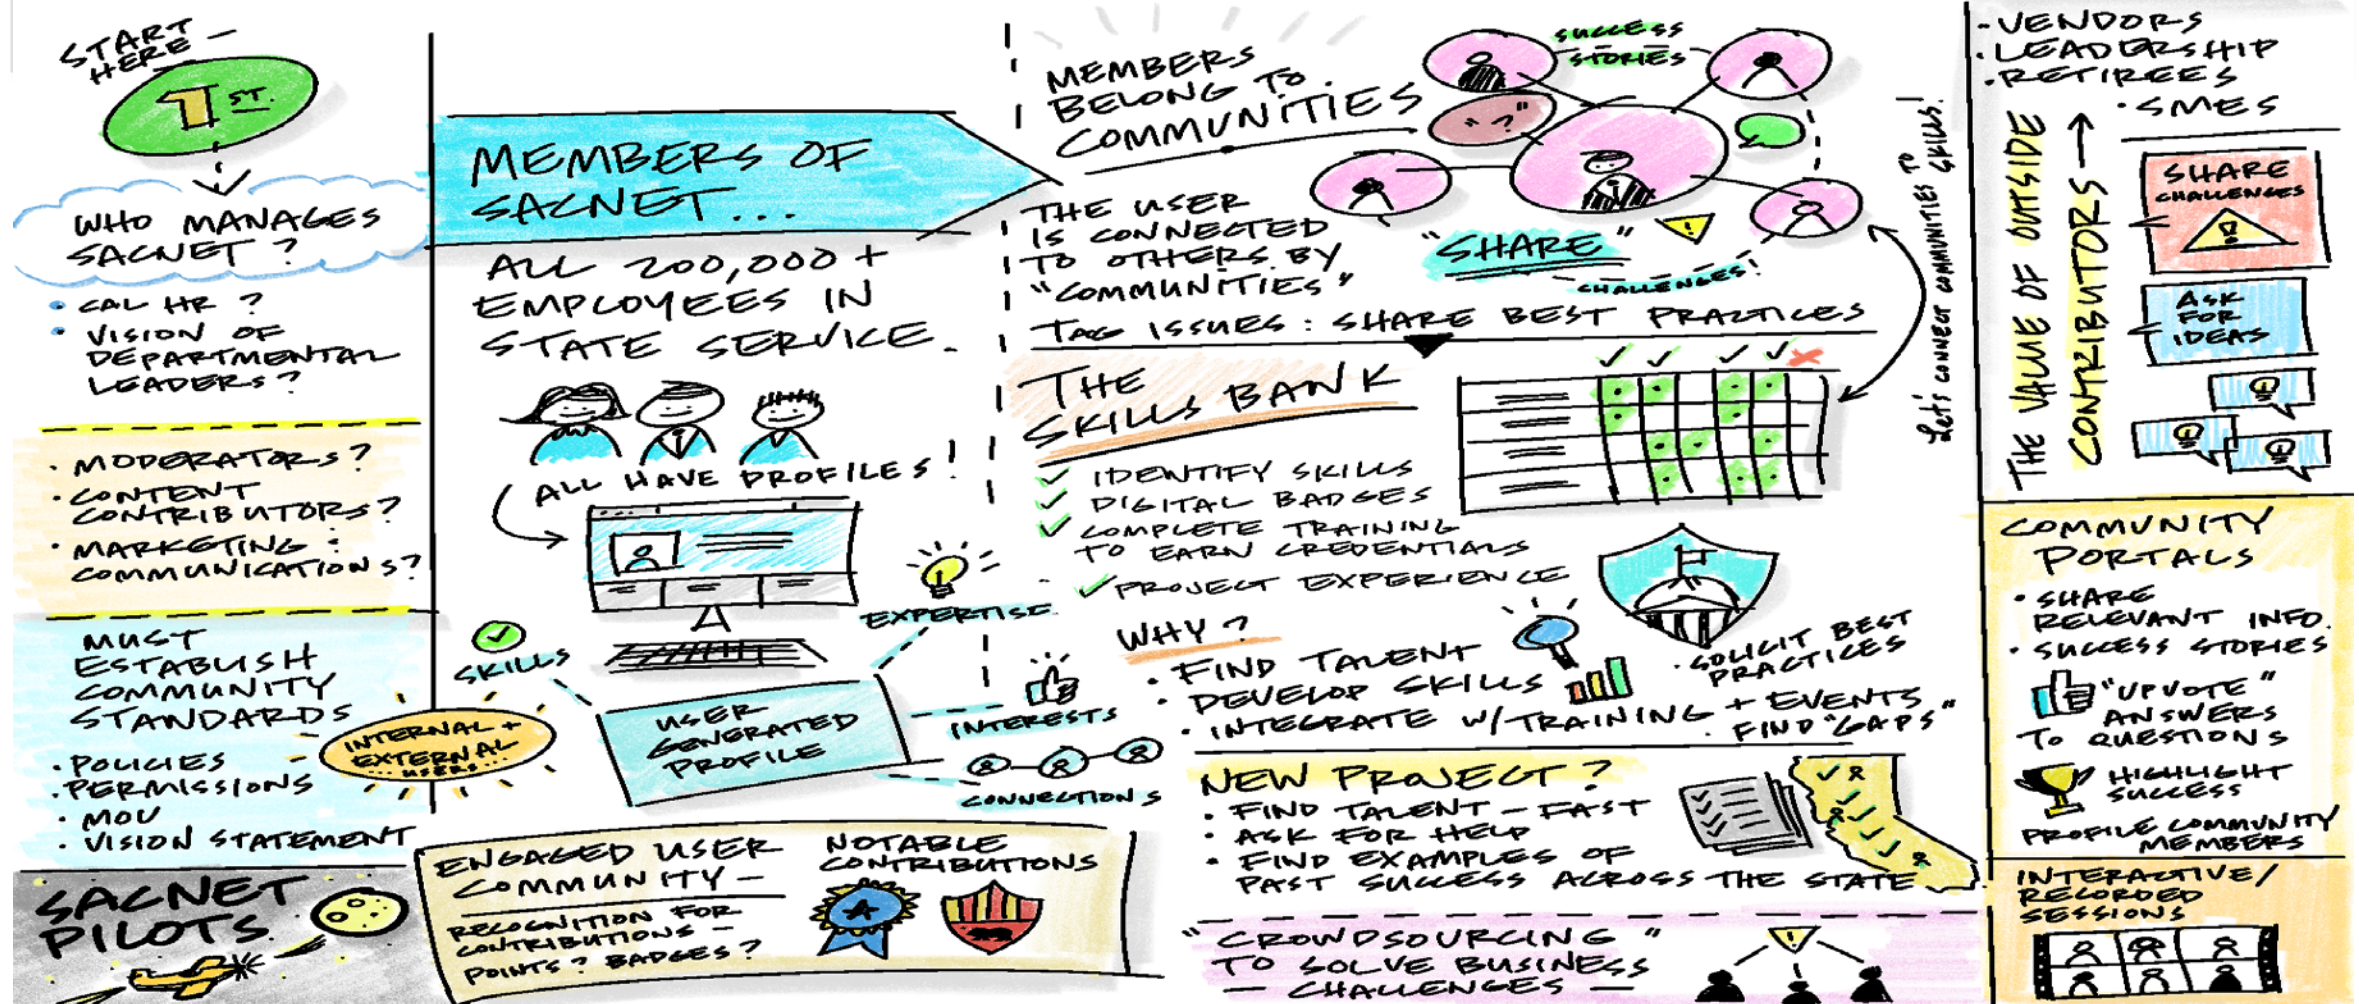 START
HERE -
1 ST.
WHO MANAGES
SACNET?
• CAL HR?
• VISION OF
DEPARTMENTAL
LEADERS?
• MODERATORS?
• CONTENT
CONTRIBUTORS?
• MARKETING :
COMMUNICATIONS?
MUST
ESTABLISH
COMMUNITY
STANDARDS
• POLICIES
• PERMISSIONS
• MOU
• VISION STATEMENT
INTERNAL +
EXTERNAL
... USERS ...
SACNET
PILOTS
MEMBERS OF
SACNET...
ALL 200,000 +
EMPLOYEES IN
STATE SERVICE.
ALL HAVE PROFILES!
EXPERTISE
SKILLS
USER
GENERATED
PROFILE
INTERESTS
CONNECTIONS
ENGAGED USER
COMMUNITY -
RECOGNITION FOR
CONTRIBUTIONS -
POINTS? BADGES?
NOTABLE
CONTRIBUTIONS
A
MEMBERS
BELONG TO
COMMUNITIES
SUCCESS
STORIES
" ? "
THE USER
IS CONNECTED
TO OTHERS BY
"COMMUNITIES"
"SHARE"
!
CHALLENGES!
TAG ISSUES : SHARE BEST PRACTICES
Let's CONNECT COMMUNITIES TO
SKILLS!
THE
SKILLS BANK
✓ IDENTIFY SKILLS
✓ DIGITAL BADGES
✓ COMPLETE TRAINING
TO EARN CREDENTIALS
✓ PROJECT EXPERIENCE
WHY?
• FIND TALENT
• DEVELOP SKILLS
• INTEGRATE W/TRAINING + EVENTS
• SOLICIT BEST
PRACTICES
• FIND "GAPS"
NEW PROJECT?
• FIND TALENT - FAST
• ASK FOR HELP
• FIND EXAMPLES OF
PAST SUCCESS ACROSS THE STATE
"CROWDSOURCING"
TO SOLVE BUSINESS
- CHALLENGES -
!
• VENDORS
• LEADERSHIP
• RETIREES
• SMES
THE VALUE OF OUTSIDE
CONTRIBUTORS →
SHARE
CHALLENGES
!
ASK
FOR
IDEAS
COMMUNITY
PORTALS
• SHARE
RELEVANT INFO.
• SUCCESS STORIES
"UPVOTE"
ANSWERS
TO QUESTIONS
HIGHLIGHT
SUCCESS
PROFILE COMMUNITY
MEMBERS
INTERACTIVE/
RECORDED
SESSIONS